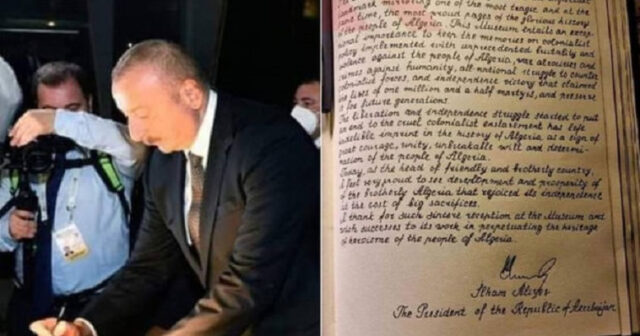 landmark mirroring one of the most tragic and at the
same time, the most proud pages of the glorious history
of the people of Algeria. This Museum entails an excep-
tional importance to keep the memories on colonialist
policy implemented with unprecedented brutality and
violence against the people of Algeria, war atrocities and
crimes against humanity, all-national struggle to counter
colonialist forces, and independence victory that claimed
the lives of one million and a half martyrs, and preserve
it for future generations.
The liberation and independence struggle started to put
an end to the cruel colonialist enslavement has left
indelible imprint in the history of Algeria as a sign of
great courage, unity, unbreakable will and determi-
nation of the people of Algeria.
Today, as the head of friendly and brotherly country,
I feel very proud to see development and prosperity
of the brotherly Algeria that rejoiced its independence
at the cost of big sacrifices.
I thank for such sincere reception at the Museum and
wish successes to its work in perpetuating the heritage
of heroism of the people of Algeria.
Ilham Aliyev
The President of the Republic of Azerbaijan